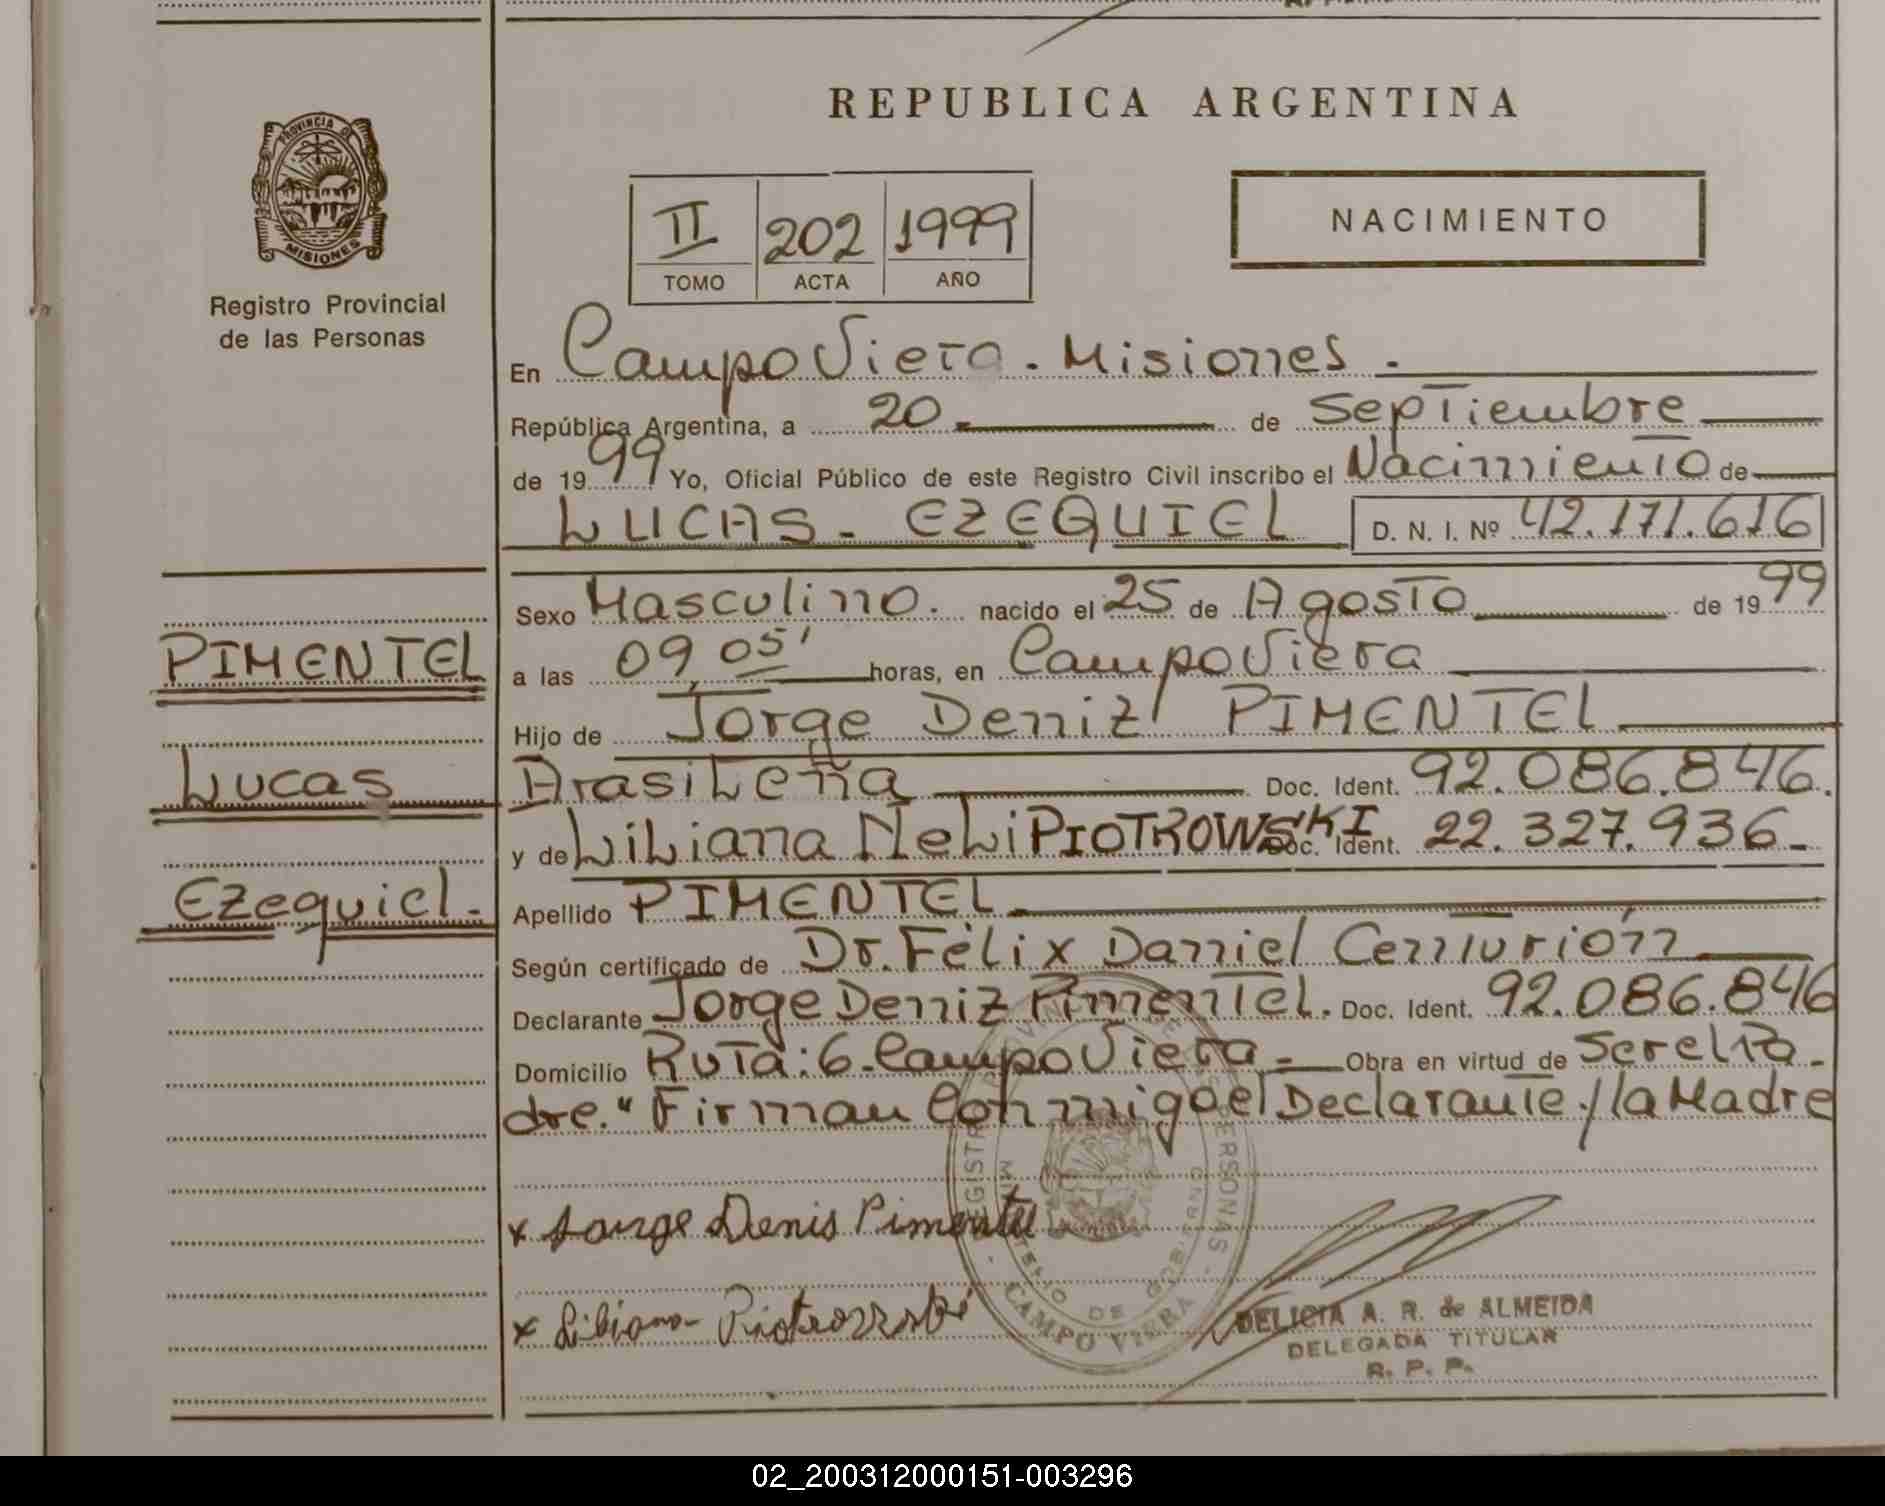 REPUBLICA ARGENTINA
PROVINCIA DE
MISIONES
Registro Provincial
de las Personas
II 202 1999
TOMO ACTA AÑO
NACIMIENTO
En Campo Viera - Misiones -
República Argentina, a 20 de Septiembre
de 1999 Yo, Oficial Público de este Registro Civil inscribo el Nacimiento de
LUCAS - EZEQUIEL D. N. I. Nº 42.171.616
Sexo Masculino. nacido el 25 de Agosto de 1999
a las 09,05' horas, en Campo Viera
Hijo de Jorge Deniz PIMENTEL
Brasileña Doc. Ident. 92.086.846.
y de Liliana Neli PIOTROWSKI Doc. Ident. 22.327.936-
Apellido PIMENTEL
Según certificado de Dr. Félix Daniel Centurión
Declarante Jorge Deniz Pimentel. Doc. Ident. 92.086.846
Domicilio Ruta: 6-Campo Viera- Obra en virtud de Ser el Pa-
dre." Firman Conmigo el Declarante y la Madre
PIMENTEL
Lucas
Ezequiel-
x Jorge Denis Pimentel
x Liliana Piotrowski
REGISTRO PROVINCIAL DE LAS PERSONAS
MINISTERIO DE GOBIERNO
CAMPO VIERA
DELICIA A. R. de ALMEIDA
DELEGADA TITULAR
R. P. P.
02_200312000151-003296